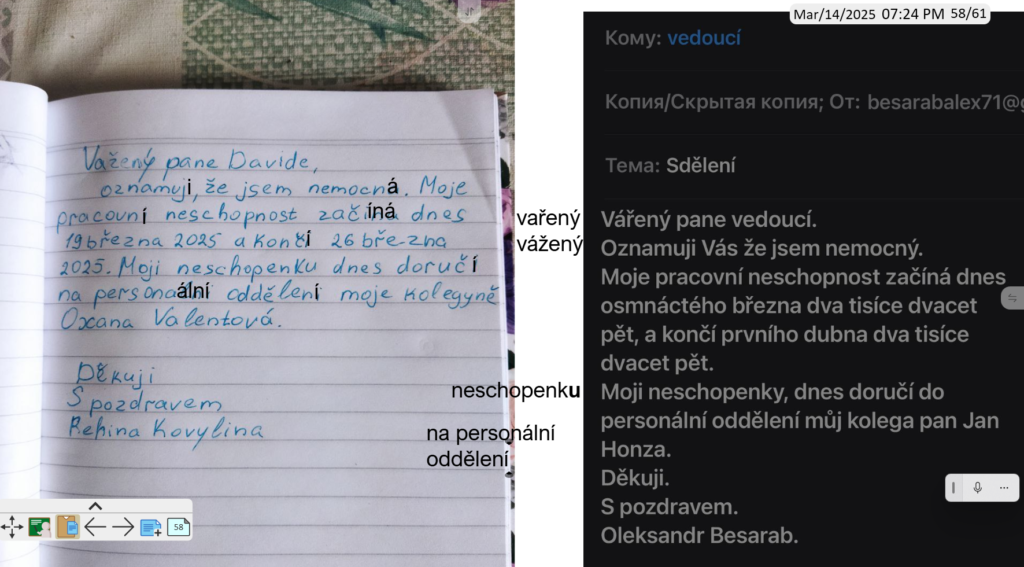 Mar/14/2025 07:24 PM 58/61
Važený pane Davide,
oznamuji, že jsem nemocná. Moje
pracovní neschopnost začíná dnes
19 března 2025 a končí 26 bře-zna
2025. Moji neschopenku dnes doručí
na personaální oddělení moje kolegyně
Oxana Valentová.
Děkuji
S pozdravem
Rehina Kovylina
vařený
vážený
neschopenku
na personální
oddělení
58
Кому: vedoucí
Копия/Скрытая копия; От: besarabalex71@g
Тема: Sdělení
Vářený pane vedoucí.
Oznamuji Vás že jsem nemocný.
Moje pracovní neschopnost začíná dnes
osmnáctého března dva tisíce dvacet
pět, a končí prvního dubna dva tisíce
dvacet pět.
Moji neschopenky, dnes doručí do
personální oddělení můj kolega pan Jan
Honza.
Děkuji.
S pozdravem.
Oleksandr Besarab.